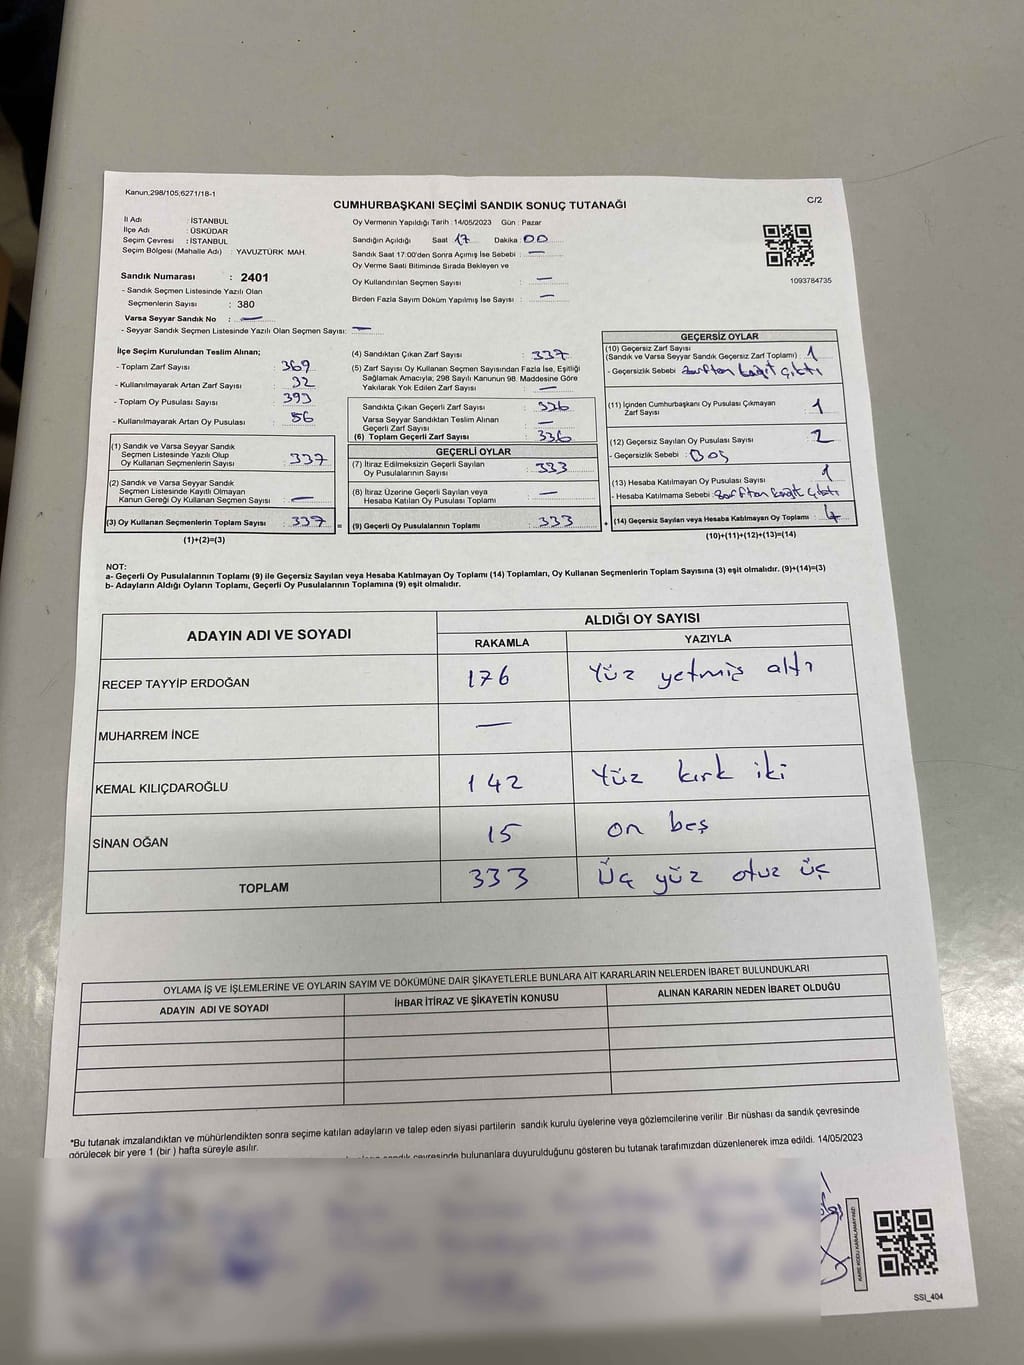 Kanun.298/105;6271/18-1
CUMHURBAŞKANI SEÇİMİ SANDIK SONUÇ TUTANAĞI
C/2
İl Adı : İSTANBUL
İlçe Adı : ÜSKÜDAR
Seçim Çevresi : İSTANBUL
Seçim Bölgesi (Mahalle Adı) : YAVUZTÜRK MAH.
Sandık Numarası : 2401
- Sandık Seçmen Listesinde Yazılı Olan
Seçmenlerin Sayısı : 380
Varsa Seyyar Sandık No : —
- Seyyar Sandık Seçmen Listesinde Yazılı Olan Seçmen Sayısı: —
Oy Vermenin Yapıldığı Tarih : 14/05/2023 Gün : Pazar
Sandığın Açıldığı Saat 17 Dakika : 00
Sandık Saat 17:00'den Sonra Açımış İse Sebebi : —
Oy Verme Saati Bitiminde Sırada Bekleyen ve
Oy Kullandırılan Seçmen Sayısı : —
Birden Fazla Sayım Döküm Yapılmış İse Sayısı : —
1093784735
İlçe Seçim Kurulundan Teslim Alınan;
- Toplam Zarf Sayısı : 369
- Kullanılmayarak Artan Zarf Sayısı : 32
- Toplam Oy Pusulası Sayısı : 393
- Kullanılmayarak Artan Oy Pusulası : 56
(1) Sandık ve Varsa Seyyar Sandık
Seçmen Listesinde Yazılı Olup
Oy Kullanan Seçmenlerin Sayısı : 337
(2) Sandık ve Varsa Seyyar Sandık
Seçmen Listesinde Kayıtlı Olmayan
Kanun Gereği Oy Kullanan Seçmen Sayısı : —
(3) Oy Kullanan Seçmenlerin Toplam Sayısı : 337 =
(1)+(2)=(3)
(4) Sandıktan Çıkan Zarf Sayısı : 337
(5) Zarf Sayısı Oy Kullanan Seçmen Sayısından Fazla İse, Eşitliği
Sağlamak Amacıyla; 298 Sayılı Kanunun 98. Maddesine Göre
Yakılarak Yok Edilen Zarf Sayısı : —
Sandıkta Çıkan Geçerli Zarf Sayısı : 336
Varsa Seyyar Sandıktan Teslim Alınan
Geçerli Zarf Sayısı : —
(6) Toplam Geçerli Zarf Sayısı : 336
GEÇERLİ OYLAR
(7) İtiraz Edilmeksizin Geçerli Sayılan
Oy Pusulalarının Sayısı : 333
(8) İtiraz Üzerine Geçerli Sayılan veya
Hesaba Katılan Oy Pusulası Toplamı : —
(9) Geçerli Oy Pusulalarının Toplamı : 333 +
GEÇERSİZ OYLAR
(10) Geçersiz Zarf Sayısı
(Sandık ve Varsa Seyyar Sandık Geçersiz Zarf Toplamı) : 1
- Geçersizlik Sebebi : Zarftan kağıt çıktı
(11) İçinden Cumhurbaşkanı Oy Pusulası Çıkmayan
Zarf Sayısı : 1
(12) Geçersiz Sayılan Oy Pusulası Sayısı : 2
- Geçersizlik Sebebi : Boş
(13) Hesaba Katılmayan Oy Pusulası Sayısı : 1
- Hesaba Katılmama Sebebi : Zarftan kağıt çıktı
(14) Geçersiz Sayılan veya Hesaba Katılmayan Oy Toplamı : 4
(10)+(11)+(12)+(13)=(14)
NOT:
a- Geçerli Oy Pusulalarının Toplamı (9) ile Geçersiz Sayılan veya Hesaba Katılmayan Oy Toplamı (14) Toplamları, Oy Kullanan Seçmenlerin Toplam Sayısına (3) eşit olmalıdır. (9)+(14)=(3)
b- Adayların Aldığı Oyların Toplamı, Geçerli Oy Pusulalarının Toplamına (9) eşit olmalıdır.
ADAYIN ADI VE SOYADI ALDIĞI OY SAYISI
RAKAMLA YAZIYLA
RECEP TAYYİP ERDOĞAN 176 Yüz yetmiş altı
MUHARREM İNCE —
KEMAL KILIÇDAROĞLU 142 Yüz kırk iki
SİNAN OĞAN 15 on beş
TOPLAM 333 Üç yüz otuz üç
OYLAMA İŞ VE İŞLEMLERİNE VE OYLARIN SAYIM VE DÖKÜMÜNE DAİR ŞİKAYETLERLE BUNLARA AİT KARARLARIN NELERDEN İBARET BULUNDUKLARI
ADAYIN ADI VE SOYADI İHBAR İTİRAZ VE ŞİKAYETİN KONUSU ALINAN KARARIN NEDEN İBARET OLDUĞU
*Bu tutanak imzalandıktan ve mühürlendikten sonra seçime katılan adayların ve talep eden siyasi partilerin sandık kurulu üyelerine veya gözlemcilerine verilir .Bir nüshası da sandık çevresinde
görülecek bir yere 1 (bir ) hafta süreyle asılır.
sandık çevresinde bulunanlara duyurulduğunu gösteren bu tutanak tarafımızdan düzenlenerek imza edildi. 14/05/2023
KARE KODU KARALAMAYINIZ!
SSI_404